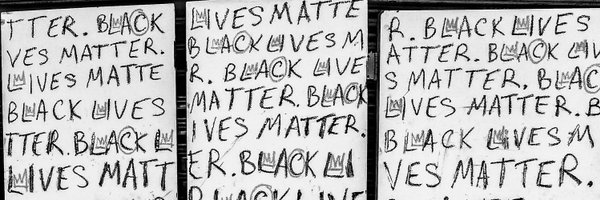 TTER. BLACK
VES MATTER.
LIVES MATTE
BLACK LIVES
TTER. BLACK L
LIVES MATT
LIVES MATTE
BLACK LIVES M
R. BLACK LIVE
MATTER. BLACK
IVES MATTER.
ER. BLACK LI
R. BLACK LIVE
R. BLACK LIVES
ATTER. BLACK LIV
S MATTER. BLAC
LIVES MATTER. B
BLACK LIVES M
VES MATTER.